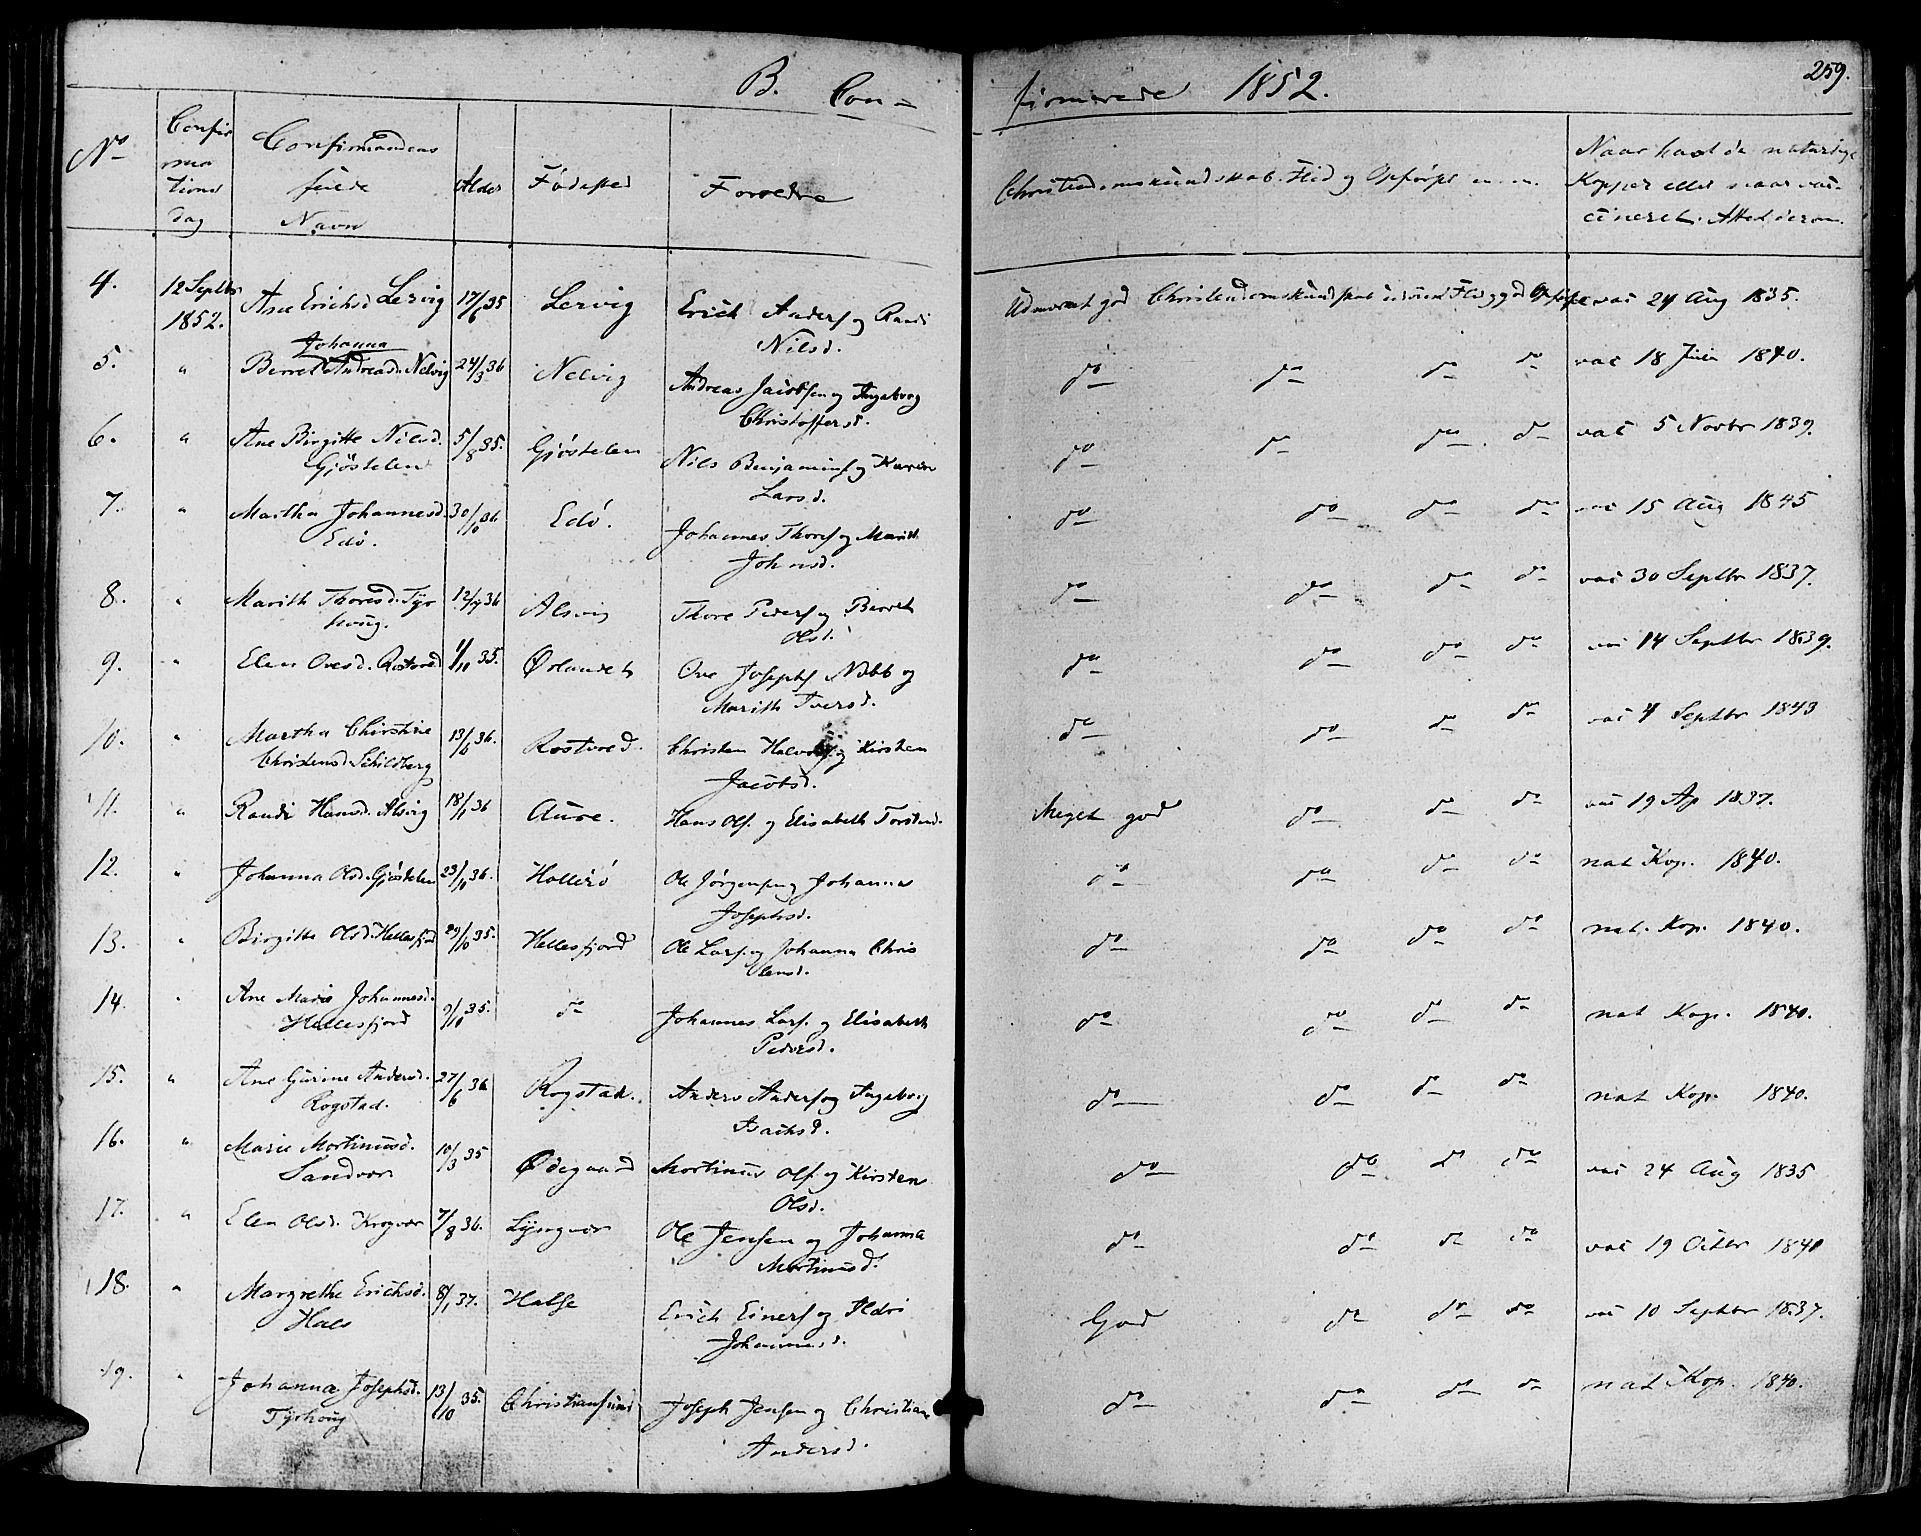 B. Con-
firmerede 1852.
259.
No
Confir
ma
tions
dag
Confirmandens
fulde
Navn
Alder
Fødested
Forældre
Christendomskundskab, Flid og Opførsel m. m.
Naar havt de naturlige
Kopper eller naar vac-
cineret. Attest derom.
4. 12 Septbr 1852. Ane Erichsd Lervig 17/6 35 Lervig Erich Anders og Randi Nilsd. Udmærket god Christendomskundskab udviist Flid og god Opførsel vac 24 Aug 1835.
5. " Berret Johanna Andreasd. Nelvig 24/3 36 Nelvig Andreas Jacobsen og Ingeborg Christoffersd. do do do do vac 18 Juli 1840.
6. " Ane Birgitte Nilsd. Gjöstelen 5/8 35. Gjöstelen Nils Benjamins og Karen Larsd. do do do do vac 5 Novbr 1839.
7. " Martha Johannesd. Edö. 30/10 36 Edö. Johannes Thores og Marith Johnsd. do do do do vac 15 Aug 1845
8. " Marith Thoresd. Tyrhoug. 12/4 36 Alsvig Thore Peders og Berret Olsd. do do do do vac 30 Septbr 1837.
9. " Elen Ovesd. Rostvad 1/11 35. Ørlandet Ove Josephs Nebb og Marith Iversd. do do do do vac 14 Septbr 1839.
10. " Martha Chirstine Christensd. Schildberg 13/6 36. Rostved. Christen Halvors og Kirsten Jacobsd. do do do do vac 4 Septbr 1843
11. " Randi Hansd. Alsvig 18/1 36 Aure. Hans Ols. og Elisabeth Torstensd. Meget god do do do vac 19 Ap 1837.
12. " Johanna Olsd. Gjöstelen 23/11 36. Hallerö Ole Jörgensen og Johanna Josephsd. do do do do nat Kop. 1840.
13. " Birgitte Olsd. Hellesfjord 29/10 35. Hellesfjord Ole Lars. og Johanna Christensd. do do do do nat. Kop. 1840.
14. " Ane Marie Johannesd. Hellesfjord 9/10 35. do Johannes Lars. og Elisabeth Pedersd. do do do do nat Kop. 1840.
15. " Ane Gurine Andersd. Rogstad. 27/6 36 Rogstad. Anders Anders og Ingeborg Isachsd. do do do do nat Kop. 1840.
16. " Marie Mortinusd. Sandvær 10/3 35 Ødegaard Mortinus Ols. og Kirsten Olsd. do do do do vac 24 Aug 1835
17. " Elen Olsd. Krogvær 7/8 36. Lyngvær Ole Jensen og Johanna Mortinusd. do do do do vac 19 Octbr 1840
18. " Margrethe Erichsd. Hals 8/1 37. Halse Erich Einers og Ildri Johannesd. God do do do vac 10 Septbr 1837.
19. " Johanna Josephsd. Tyrhoug 13/10 35. Christiansund Joseph Jensen og Christiane Andersd. do do do do nat Kop. 1840.